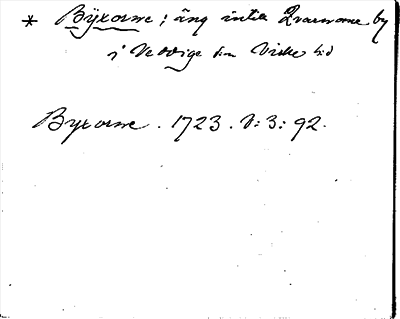 * Byxorne; äng intill Qvarnarne by
i Veddige sn Viske hd
Byxorne. 1723. V: 3: 92.